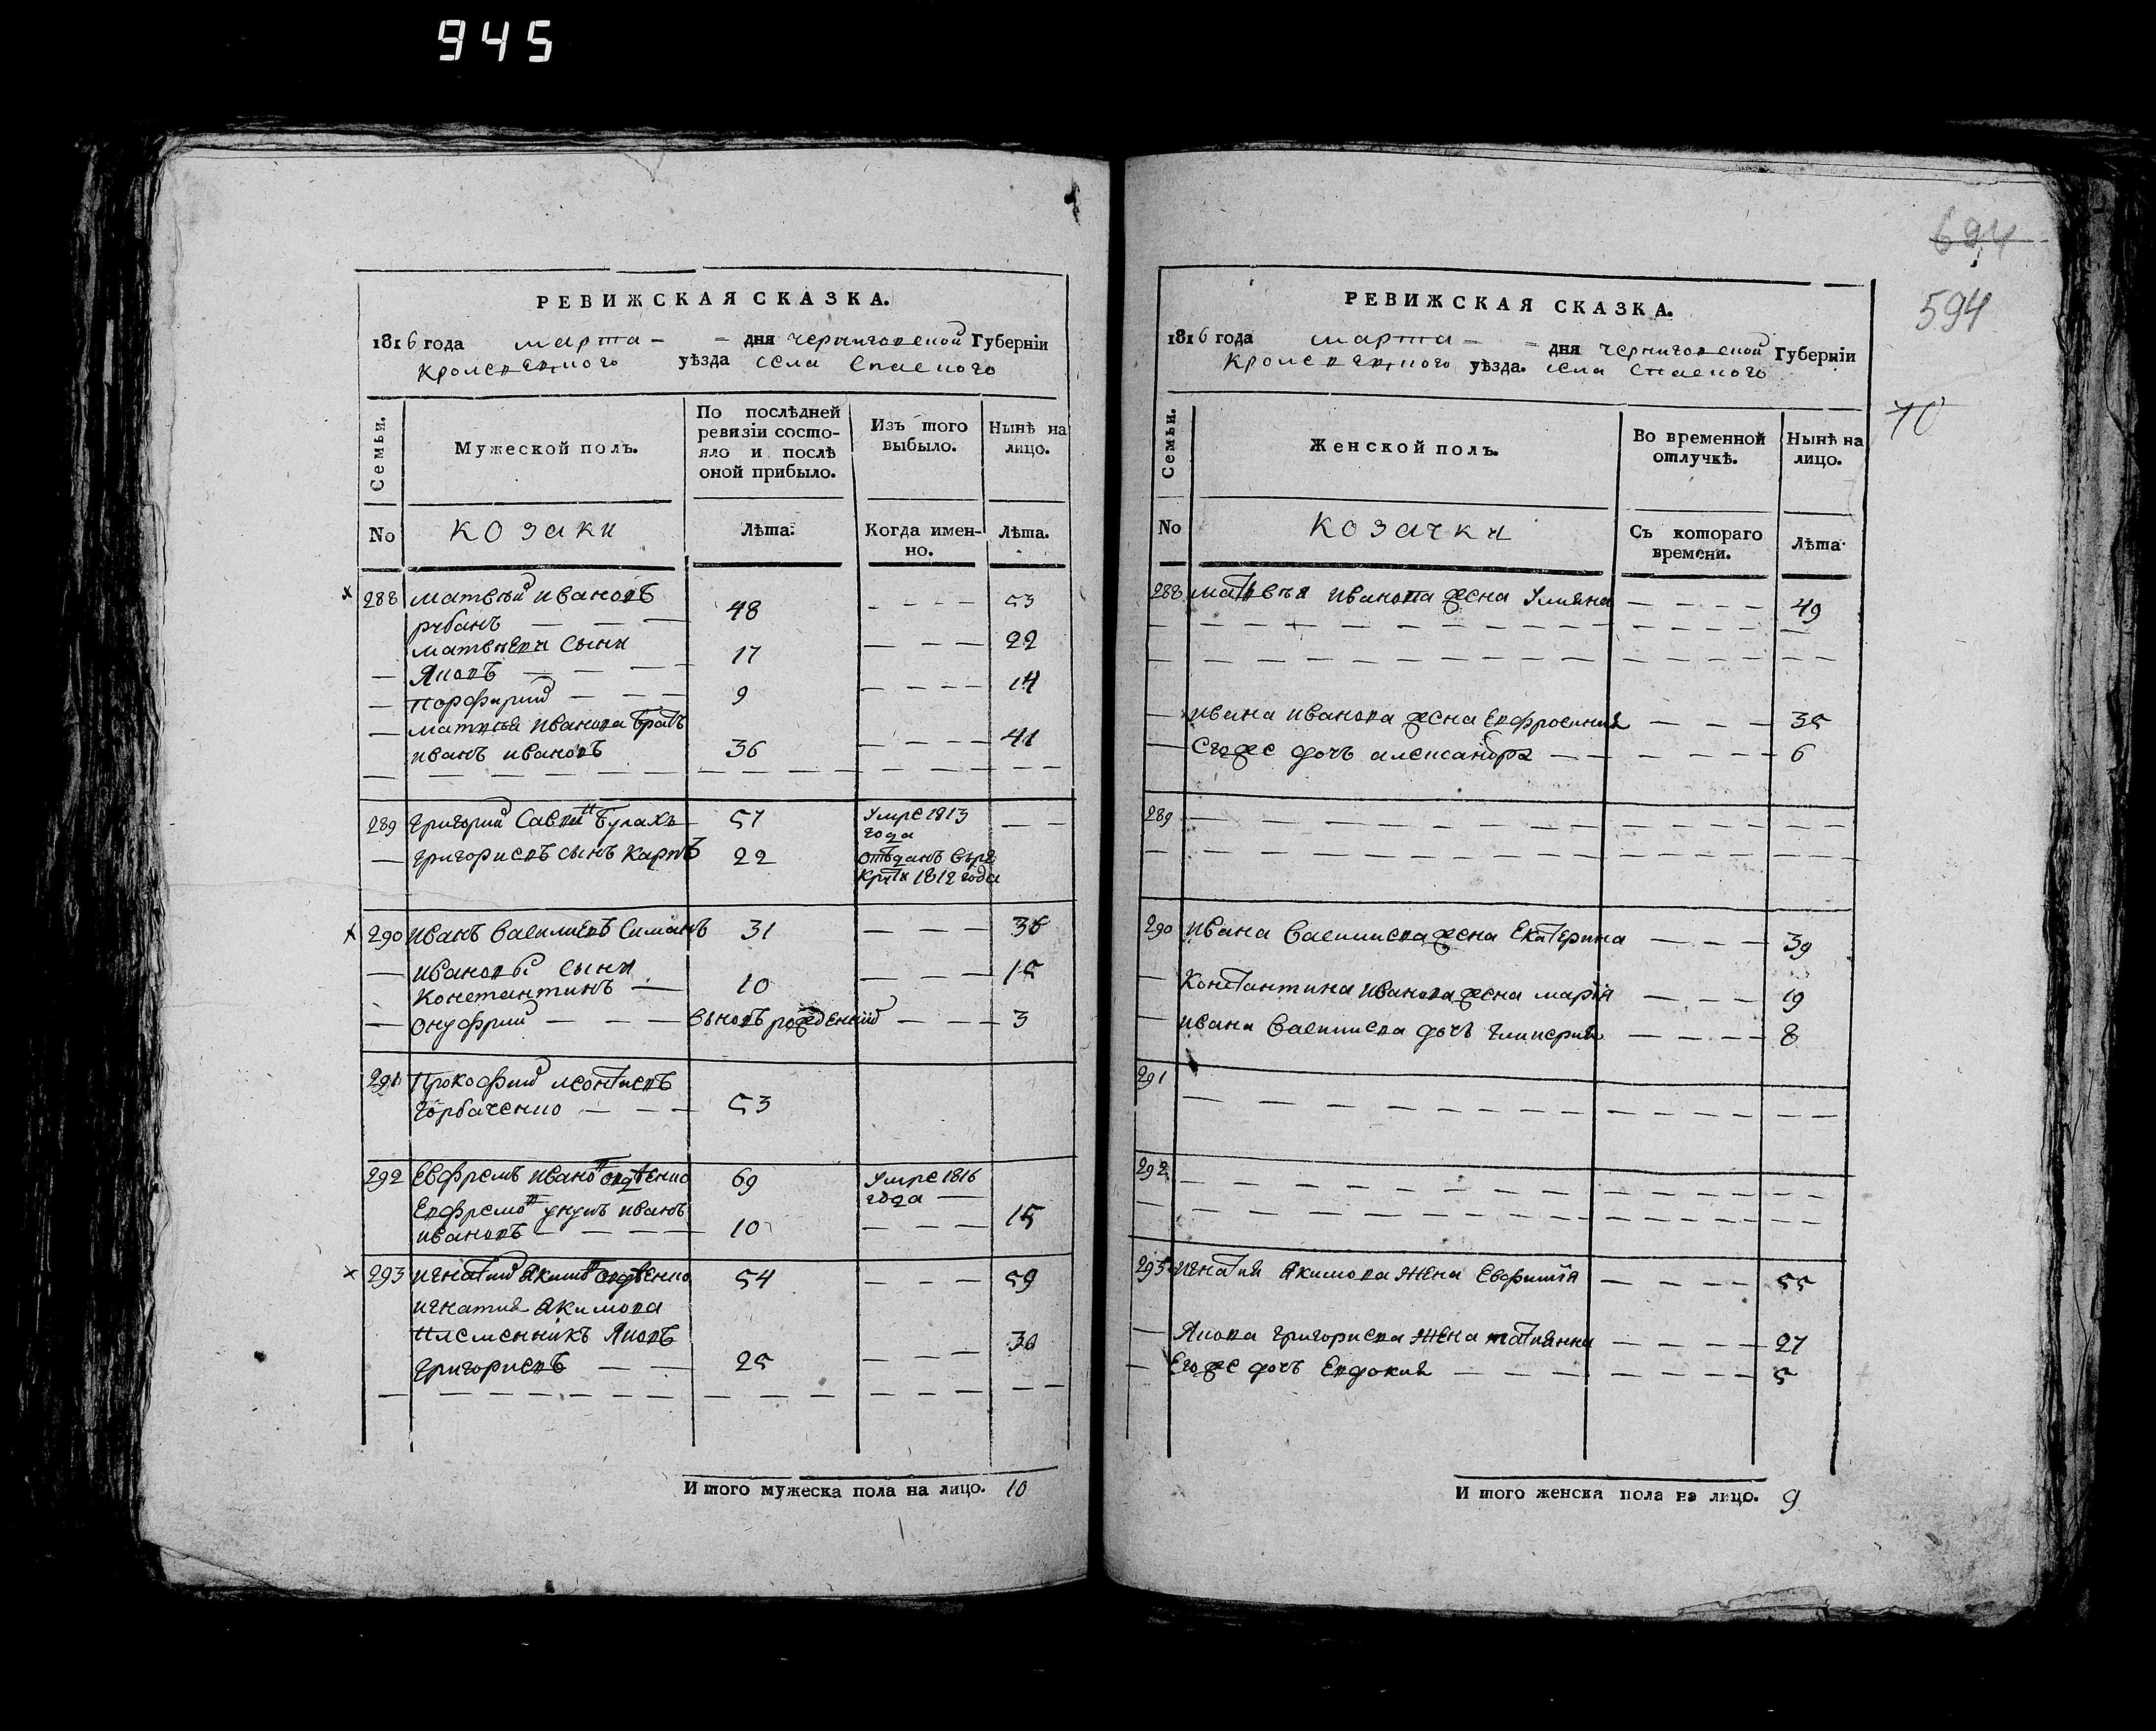 945
РЕВИЖСКАЯ СКАЗКА.
1816 года марта - - дня черниговской Губерніи
Кролевецкого уѣзда села Спаского
Семьи.
Мужеской полъ.
По послѣдней ревизіи состо-
яло и послѣ оной прибыло.
Изъ того выбыло.
Нынѣ на лицо.
No
козаки
Лѣта.
Когда имен-
но.
Лѣта.
288 матвѣй ивановъ 48 53
рубанъ
матвѣеви сыни 17 22
Яковъ
порфирий 9 14
матвѣя иванова братъ
иванъ ивановъ 36 41
289 григорий Савинъ Булахъ 57 Умре 1813
года
григориевъ сынъ Карпъ 22 отъданъ Врѣ
Круты 1812 года
290 иванъ василиевъ Симанъ 31 36
ивановы сыни
Константинъ 10 15
онуфрий вьновъ рожденний 3
291 Прокофий леонтиевъ
горбаченко 53
292 Евфремъ ивановъ 69 Умре 1816
года
Евфремовъ унукъ иванъ
ивановъ 10 15
293 игнатий Якимовъ 54 59
игнатия Якимова
племенникъ Яковъ
григориевъ 25 30
Итого мужеска пола на лицо. 10
694
594
70
РЕВИЖСКАЯ СКАЗКА.
1816 года марта - - дня черниговской Губерніи
Кролевецкого уѣзда. села Спаского
Семьи.
Женской полъ.
Во временной отлучкѣ.
Нынѣ на лицо.
No
Козачки
Съ котораго времени.
Лѣта
288 матвѣя иванова жена Улияна 49
ивана иванова жена Евфросиния 35
Егоже дочъ александра 6
289
290 ивана василиева жена Екатерина 39
Константина иванова жена мария 19
ивана василиева дочъ гликерия 8
291
292
293 игнатия Якимова жена Евфимия 55
Якова григориева жена татиянна 27
Егоже дочъ Евдокия 5
Итого женска пола на лицо. 9